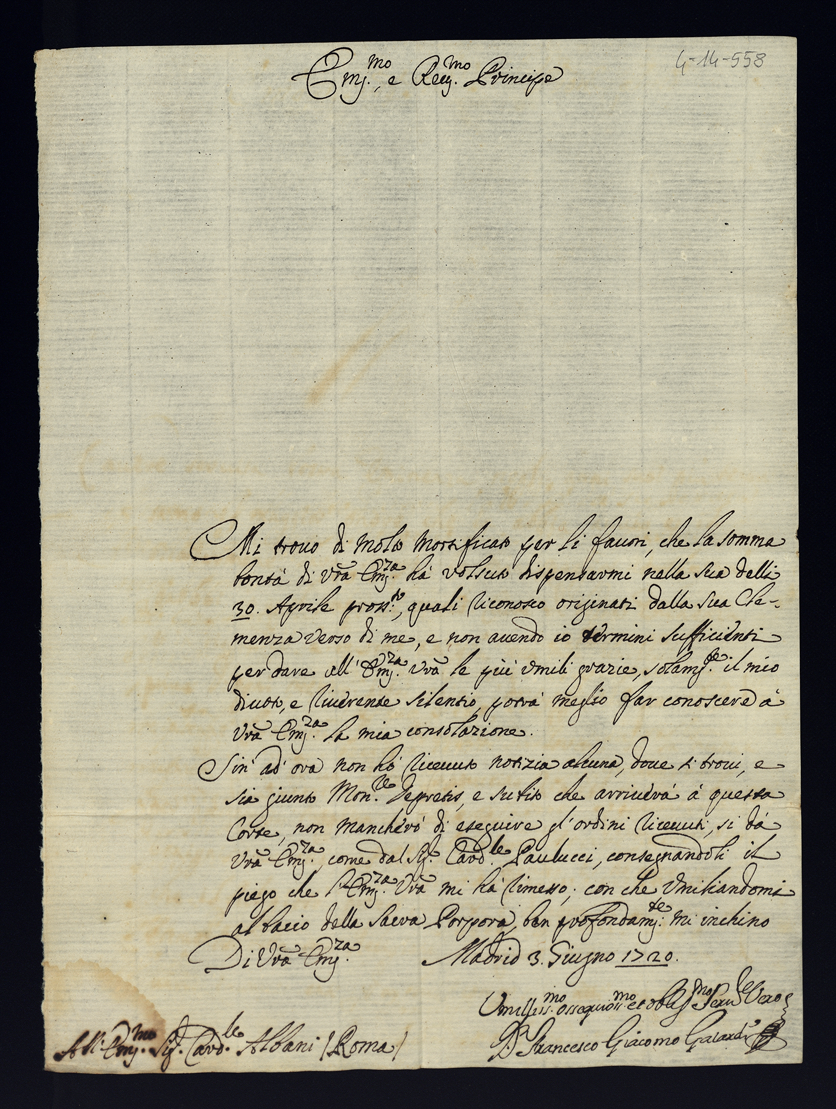 4-14-558
Em.mo, e Rev.mo Principe
Mi trovo di molto mortificato per li favori, che la somma
bontà di Vrā Em.za hà volsuto dispensarmi nella sua delli
30. Aprile pross.to, quali riconosco originati dalla sua Cle-
menza verso di me, e non avendo io termini sufficienti
per dare all' Em.za Vrā le più umili grazie, solam.te il mio
divoto, e riverente silentio, potrà meglio far conoscere à
Vrā Em.za la mia consolazione.
Sin' ad' ora non hò ricevuto notizia alcuna, dove si trovi, e
sia giunto Mon.re Depretis, e subito che arriverà à questa
Corte, non mancherò di eseguire gl' ordini ricevuti, sì da
Vrā Em.za, come dal Sig.r Card.le Paulucci, consegnandoli il
piego che l'Em.za Vrā mi hà rimesso; con che umiliandomi
al bacio della Sacra Porpora, ben profondam.te mi inchino
Di Vrā Em.za Madrid 3. Giugno 1720.
Umiliss.mo ossequios.mo et obblig.mo Ser.re Vero
D. Francesco Giacomo
All' Em.mo Sig.r Card.le Albani (Roma)